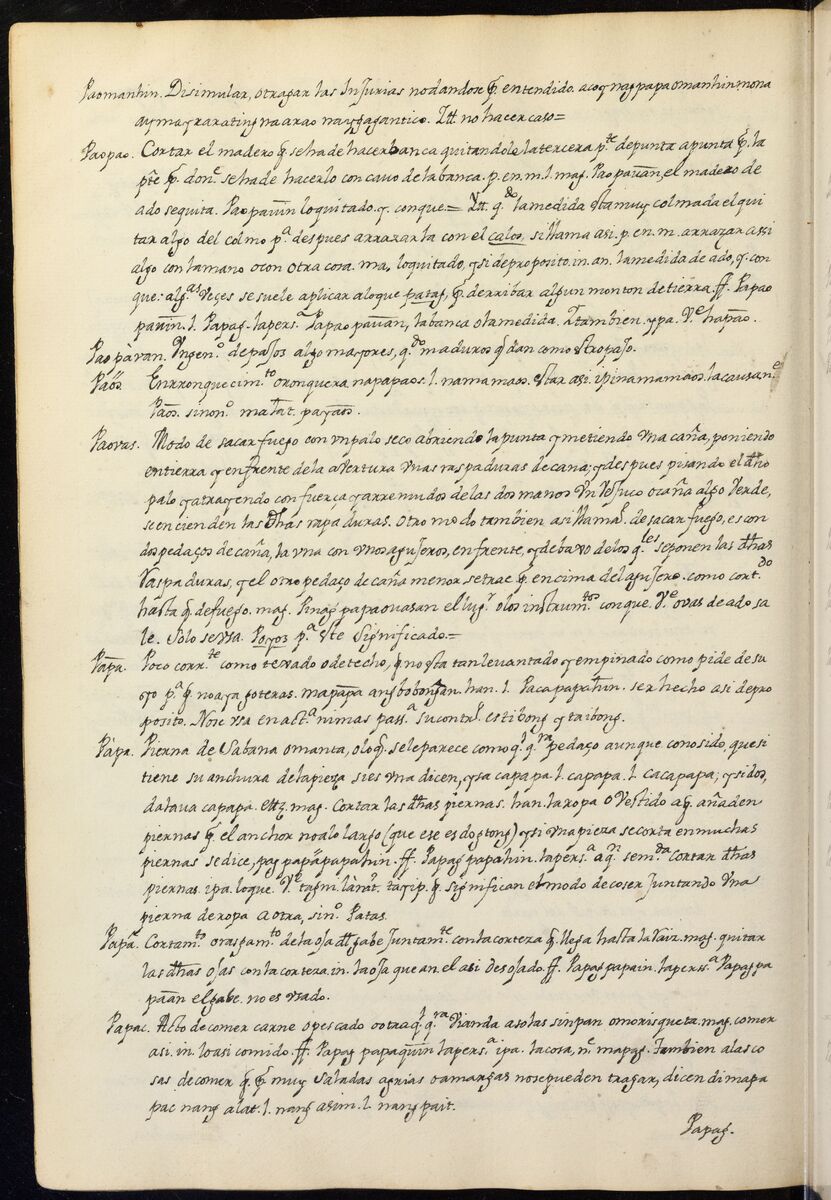 Paomanhin. Disimular, otragar las Injurias nodandose p̲ entendido. acoy nagpapaomanhin, nona
aymayxaxating na arao nay gagantico. Itt. no hacer caso=
Paopao. Cortar el madero q̲ seha de hacer banca quitandole latercera p.te depunta apunta p̲ la
pte p̲ don.e seha de hacerlo concavo de la banca. p. en. m. l. mag. Pao pauan, el madero de
ado sequita. Pao pauin loquitado. y. conque.= Itt. q.do lamedida stamuy colmada el qui
tar algo del colmo p.a despues arrazarla con el calos, sillama asi. p. en. m. arrazar assi
algo con lamano ocon otra cosa. ma, loquitado, y si deproposito. in. an. lamedida de ado, y. con
que: alg.as Veçes se suele aplicar aloque patag, p̲ derribar algun monton de tierra. ff. Papao
pauin. l. Papag. lapers.a Papao pauan, labanca olamedida. Itambien ypa. V.e hapao.
Pao pàvan. Vngen.o depajos algo mayores, q.do maduros q̲ dan como stropajo.
Paòs. Enrronquecim.to oronquera napapaos. l. namamaos. star asi. ipinamamaos. la causan.e
Paos. sinon.o malat. payaos.
Paovas. Modo de sacar fuego con vn palo seco abriendo lapunta y metiendo vna caña, poniendo
entierra y enfrente dela avertura vnas raspaduras de cana; y despues pisando el dho
palo y atrayendo con fuerça y arremudos de las dos manos vn Vejuco ocaña algo Verde,
se encienden las dhas rapaduras. Otro modo tambien asi llama.l de sacar fuego, es con
dos pedaços de caña, la vna con vnos agujeros, en frente, y debaxo delos q.les seponen las dhas
Raspaduras, y el otro pedaço de caña menor setrae p̲ encima del agujero. como cort.do
hasta q̲ defuego. mag. Pinag papaouasan el lug.r olos instrum.tos conque. V.e ovas de ado sa
le. Solo se vsa. Poyos p.a ste significado.=
Papa. Poco corr.te como texado odetecho, q̲ no sta tan levantado y empinado como pide de su
yo p.a q̲ no aya goteras. mapapa ang bobongan. han. l. Pacapapahin. ser hecho asi depro
posito. Nose vsa en act.a nimas pass.a su contr.l es tibong y taibong.
Pàpa. Pierna de Sabana omanta, oloq̲ seleparece como q.l q.ra pedaço aunque conosido, que si
tiene su anchura delapieza si es vna dicen, ysa capapa l. capapa. l. cacapapa; y si dos,
dalaua capapa. ettz. mag. Cortar las dhas piernas. han. la ropa o Vestido a q̲ añaden
piernas p̲ el anchor noalo largo (que ese es dogtong) y si vna pieza se corta en muchas
piernas sedice, pag papàpapahin. ff. Papag papahin. lapers.a a q.n sem.da cortar dhas
piernas. ipa. loque. V.e tagni. làrat. tayip. q̲ significan el modo de coser juntando vna
pierna de ropa a otra, sin.o Patas.
Papa. Cortam.to orasgam.to dela oja dl gabe juntam.te con la corteza q̲ llega hasta la Raiz. mag. quitar
las dhas ojas con la corteza. in. laoja que an. el asi desojado. ff. Papag papain. lapers.a Papag pa
paan el gabe. no es vsado.
Papac. Acto de comer carne o pescado o otra q.l q.ra Vianda asolas sin pan omorisqueta. mag. comer
asi. in. lo asi comido. ff. Papag papaquin lapers.a ipa. la cosa, n.e mapag. Tambien alas co
sas de comer q̲ p̲ muy saladas agrias oamargas nose pueden tragar, dicen di mapa
pac nang alat. l. nang asim. l. nang pait.
Papag.